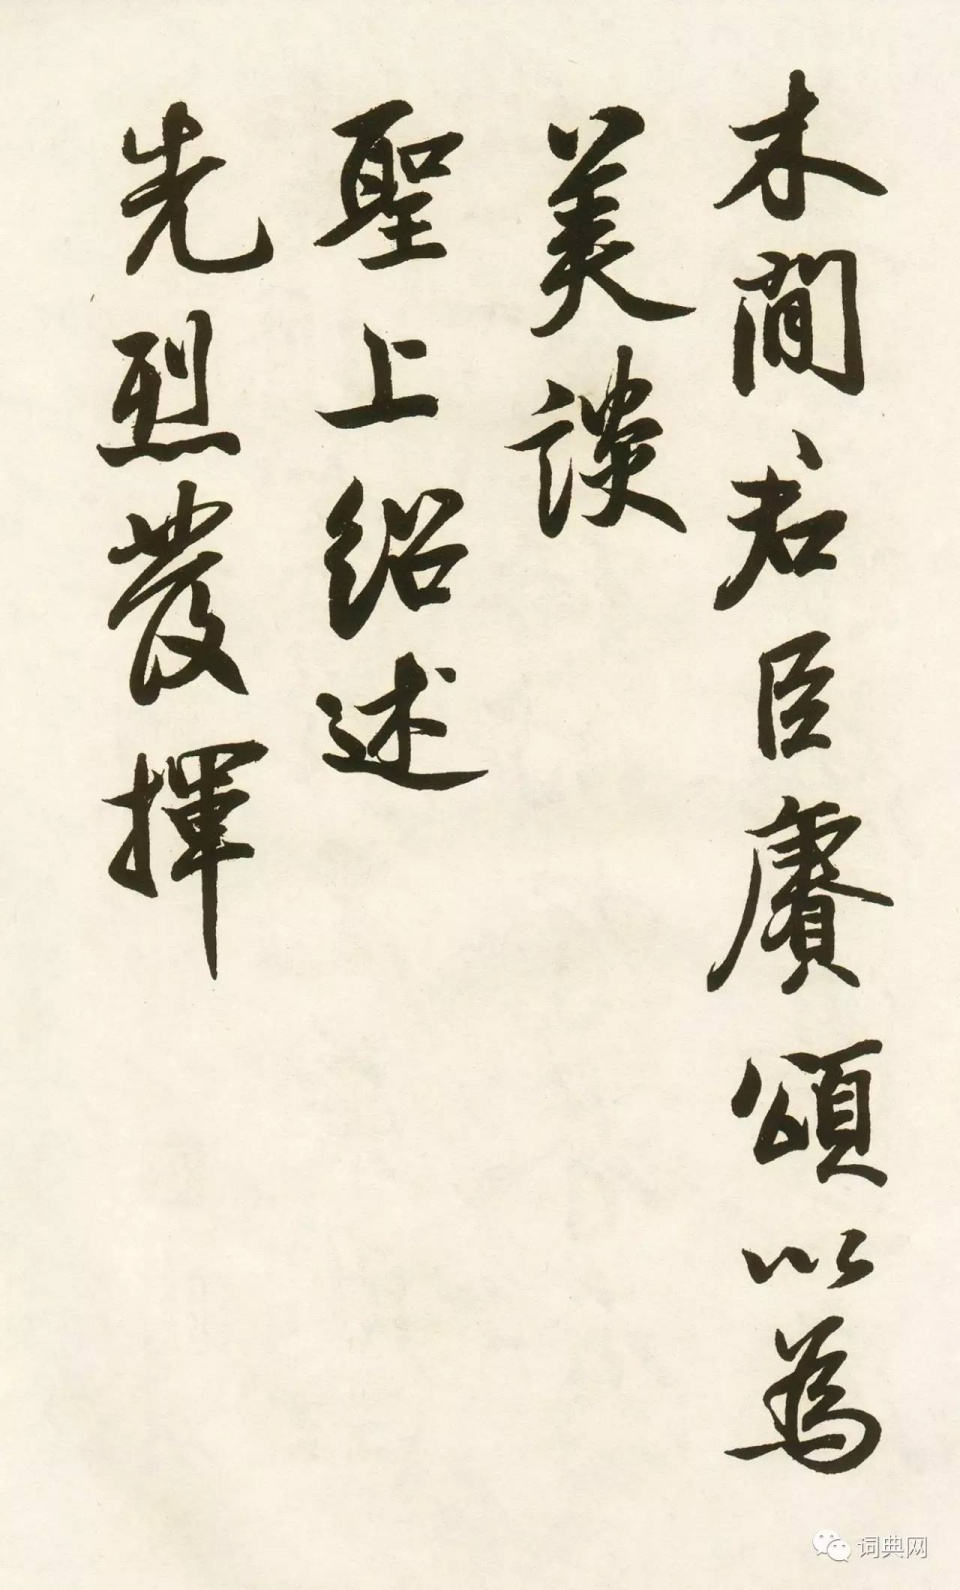 木間君臣賡頌以為
美談
聖上紹述
先烈發揮
词典网